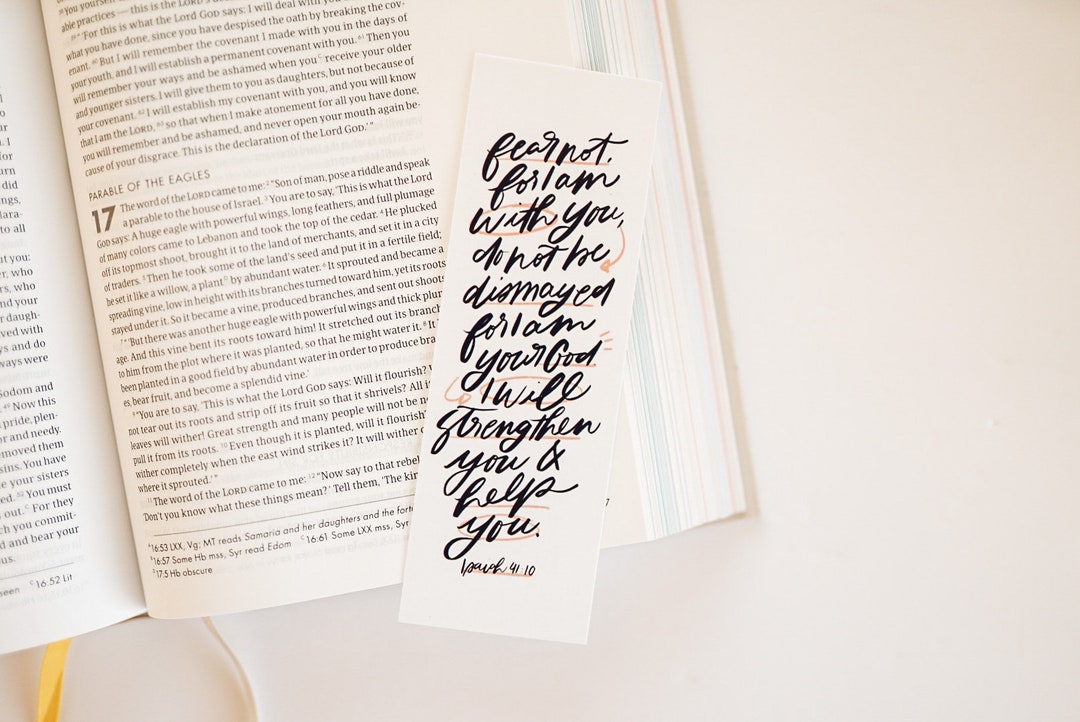 You yourself
able practices — this is the LORD's
"For this is what the Lord GOD says: I will deal with you
what you have done, since you have despised the oath by breaking the cov-
enant. 60 But I will remember the covenant I made with you in the days of
your youth, and I will establish a permanent covenant with you. 61 Then you
will remember your ways and be ashamed when you C receive your older
and younger sisters. I will give them to you as daughters, but not because of
your covenant. 62 I will establish my covenant with you, and you will know
that I am the LORD, 63 so that when I make atonement for all you have done,
you will remember and be ashamed, and never open your mouth again be-
cause of your disgrace. This is the declaration of the Lord GOD.' "
PARABLE OF THE EAGLES
17 The word of the LORD came to me: 2 "Son of man, pose a riddle and speak
a parable to the house of Israel. 3 You are to say, 'This is what the Lord
GOD says: A huge eagle with powerful wings, long feathers, and full plumage
of many colors came to Lebanon and took the top of the cedar. 4 He plucked
off its topmost shoot, brought it to the land of merchants, and set it in a city
of traders. 5 Then he took some of the land's seed and put it in a fertile field;
he set it like a willow, a plant D by abundant water. 6 It sprouted and became a
spreading vine, low in height with its branches turned toward him, yet its roots
stayed under it. So it became a vine, produced branches, and sent out shoots
7 " 'But there was another huge eagle with powerful wings and thick plum
age. And this vine bent its roots toward him! It stretched out its branch
to him from the plot where it was planted, so that he might water it. 8 It
been planted in a good field by abundant water in order to produce bra
es, bear fruit, and become a splendid vine.'
9 "You are to say, 'This is what the Lord GOD says: Will it flourish?
not tear out its roots and strip off its fruit so that it shrivels? All i
leaves will wither! Great strength and many people will not be n
pull it from its roots. 10 Even though it is planted, will it flourish
wither completely when the east wind strikes it? It will wither
where it sprouted.' "
11 The word of the LORD came to me: 12 "Now say to that rebel
'Don't you know what these things mean?' Tell them, 'The kin
A 16:53 LXX, Vg; MT reads Samaria and her daughters and the fort
B 16:57 Some Hb mss, Syr read Edom C 16:61 Some LXX mss, Syr
D 17:5 Hb obscure
did
ings,
to all
t you:
r, who
s, who
nd your
r daugh-
ved with
ys and do
ways were
Sodom and
49 Now this
pride, plen-
or and needy.
moved them
sins. You have
e your sisters
ed. 52 You must
out. C For they
h you commit-
d and bear your
us.
seen C 16:52 Lit
fear not,
for I am
with you,
do not be
dismayed
for I am
your God
I will
strengthen
you &
help
you.
Isaiah 41:10